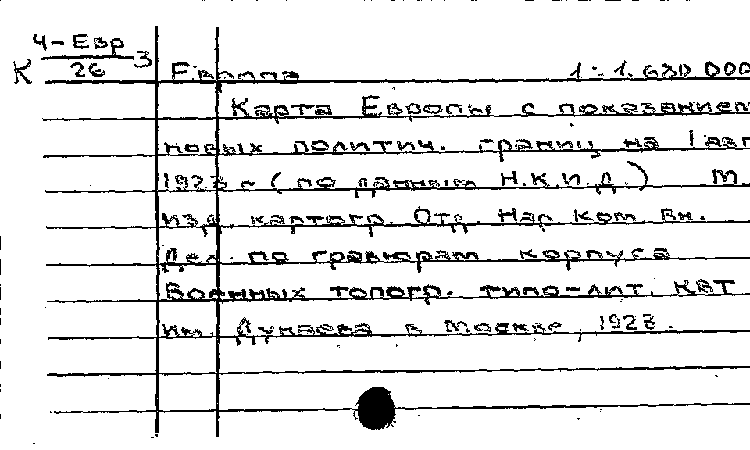 К 4-Евр/26 3
Европа 1:1.680 000
Карта Европы с показанием
новых политич. границ на 1 авг
1923 г (по данным Н.К.И.Д.) М.
изд. картогр. Отд. Нар Ком Вн.
Дел. по гравюрам корпуса
Военных топогр. типо-лит. КВТ
им. Дунаева в Москве, 1923.